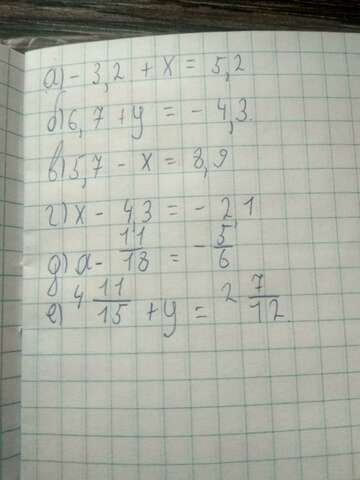 а) - 3,2 + x = 5,2
б) 6,7 + y = - 4,3.
в) 5,7 - x = 8,9
г) x - 4,3 = - 2,1
д) a - 11/18 = - 5/6
е) 4 11/15 + y = 2 7/12.